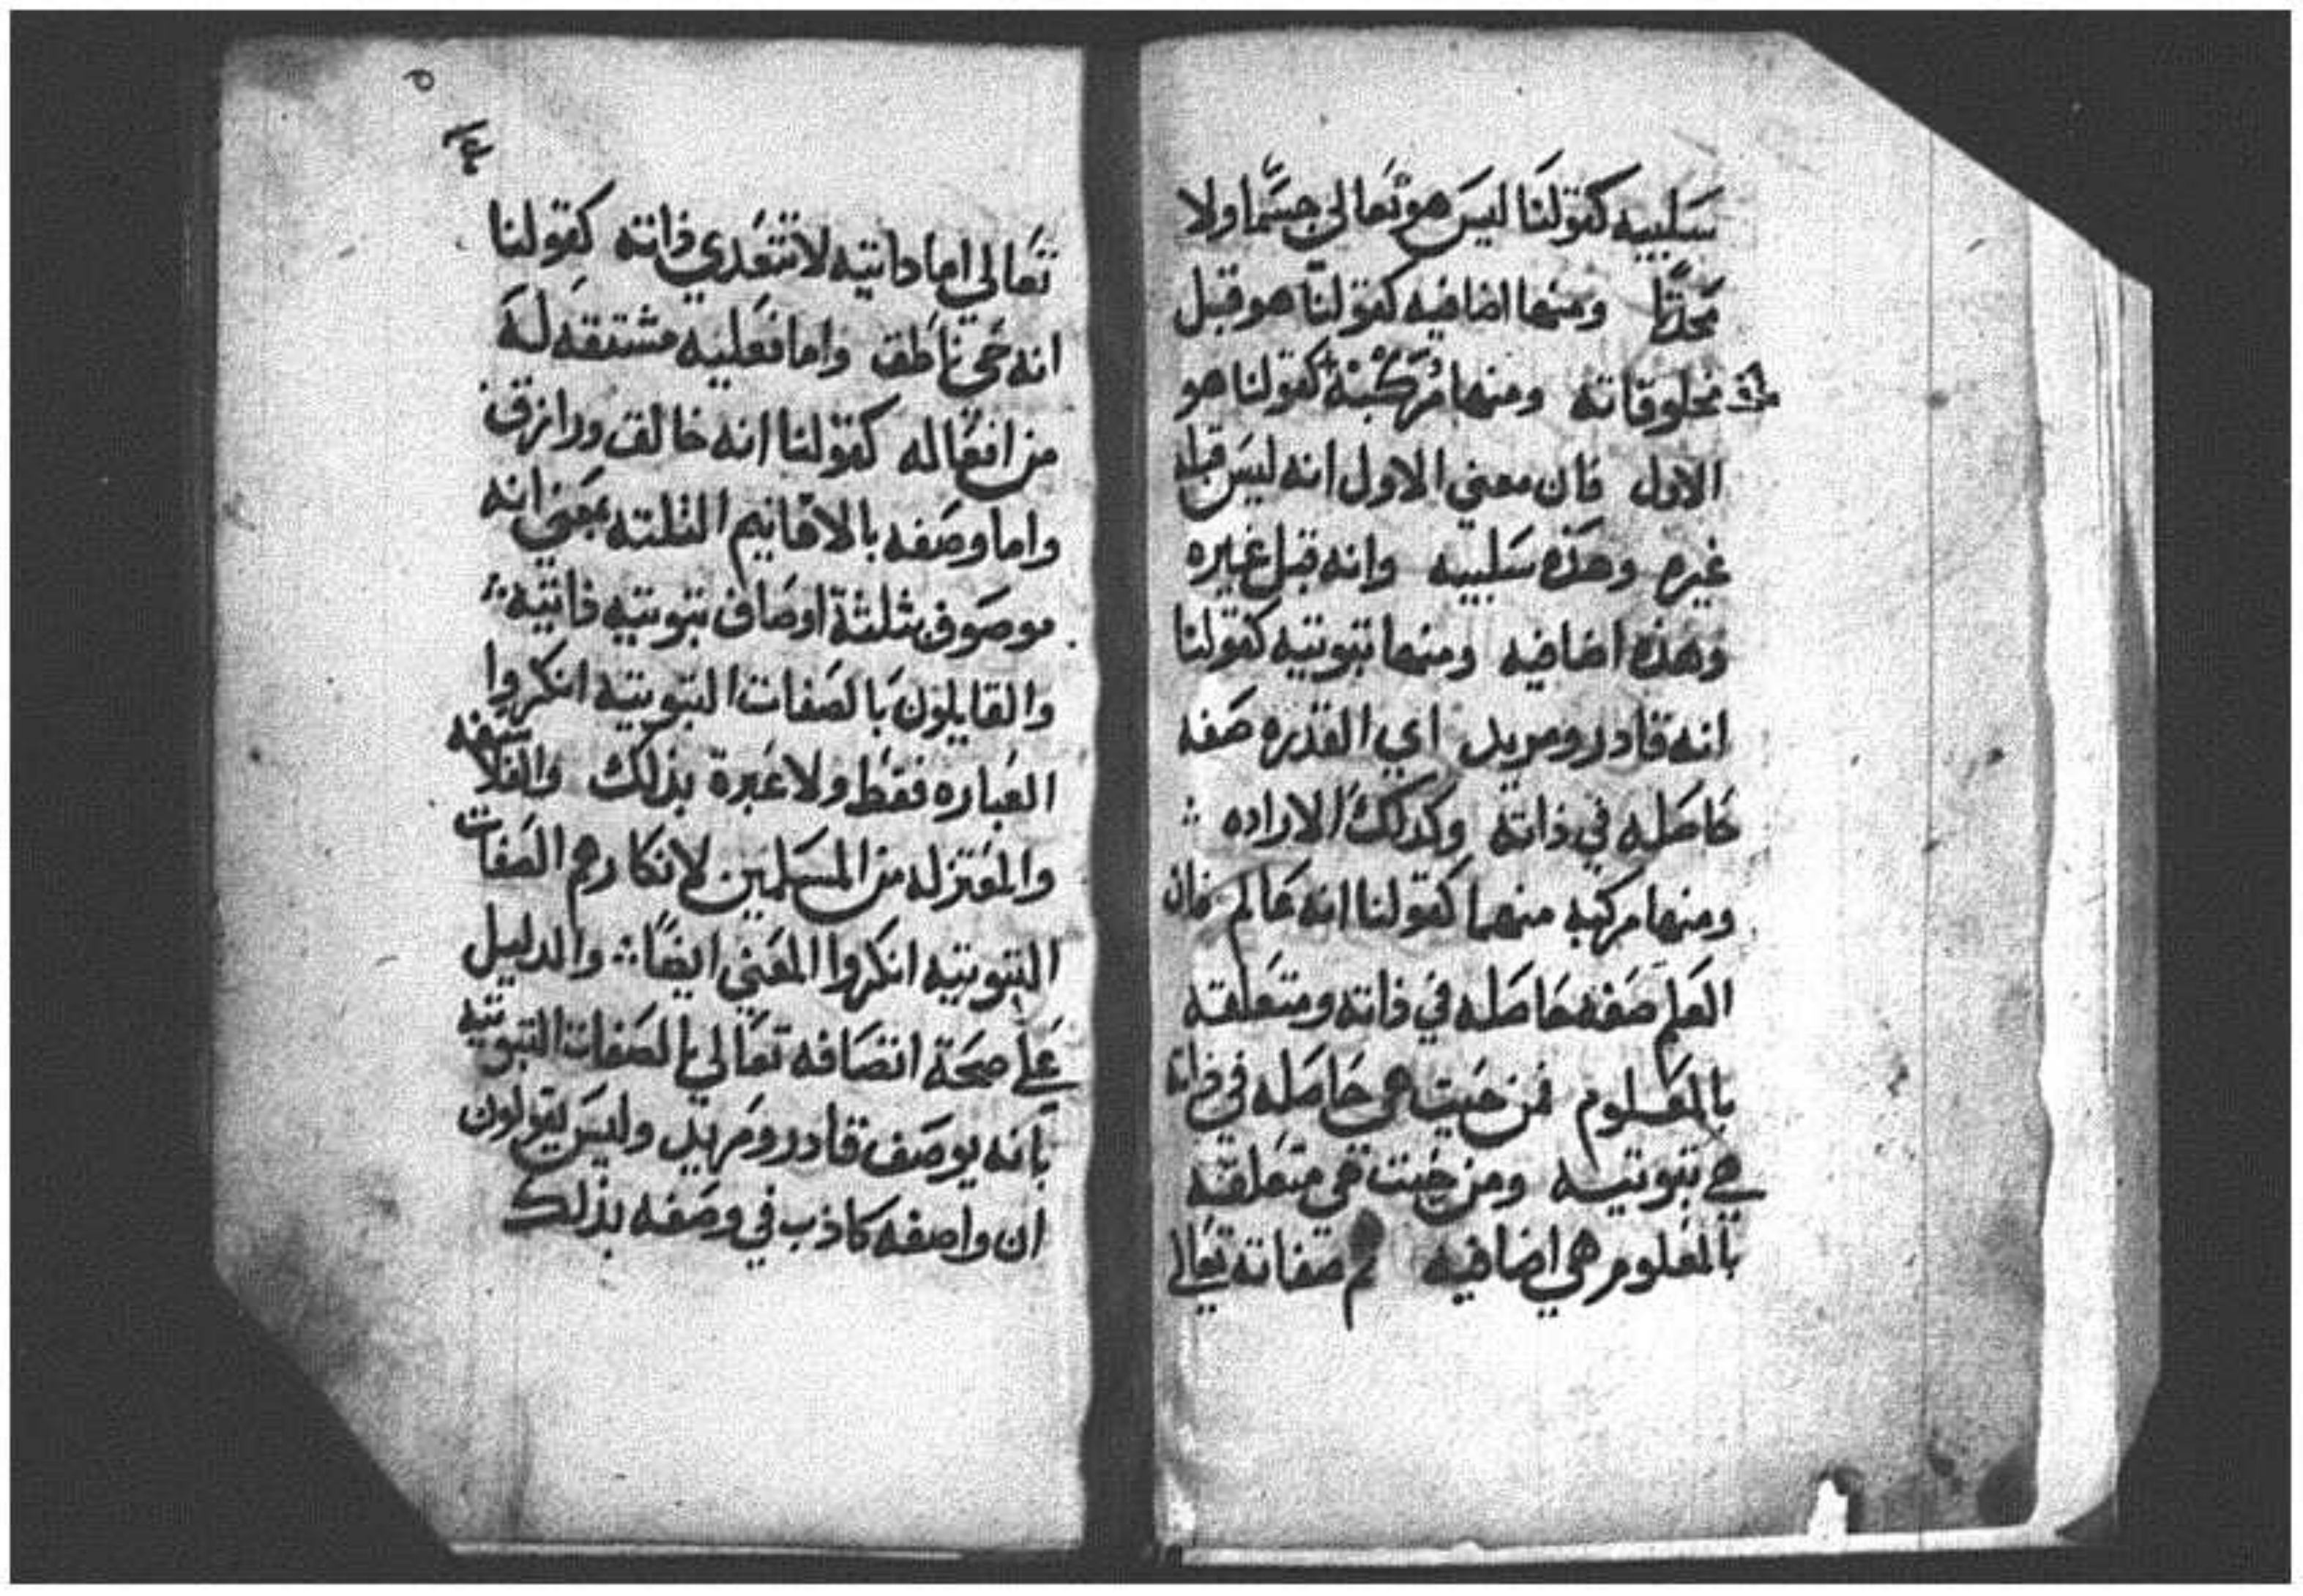 سلبيه كقولنا ليس هو تعالي جسما ولا
محدثا ومنها اضافيه كقولنا هو قبل
مخلوقاته ومنها مركبة كقولنا هو
الاول فان معني الاول انه ليس قبله
غيره وهذه سلبيه وانه قبل غيره
وهذه اضافيه ومنها ثبوتيه كقولنا
انه قادر ومريد اي القدره صفه
حاصله في ذاته وكذلك الاراده
ومنها مركبه منهما كقولنا انه عالم فان
العلم صفه حاصله في ذاته ومتعلقه
بالمعلوم فمن حيث هي حاصله في ذاته
هي ثبوتيه ومن حيت هي متعلقه
بالمعلوم هي اضافيه ثم صفاته تعالي
تعالي اما داتيه لا تتعدي ذاته كقولنا
انه حي ناطق واما فعليه مشتقه له
من افعاله كقولنا انه خالق ورازق
واما وصفه بالاقانيم الثلثه بمعني انه
موصوف بثلثة اوصاف ثبوتيه ذاتيه
والقايلون بالصفات الثبوتيه انكروا
العباره فقط ولا عبرة بذلك والفلاسفه
والمعتزله من المسلمين لانكارهم الصفات
الثبوتيه انكروا المعني ايضا والدليل
علي صحة اتصافه تعالي بالصفات الثبوتيه
بانه يوصف قادر ومريد وليس يقولون
ان واصفه كاذب في وصفه بذلك